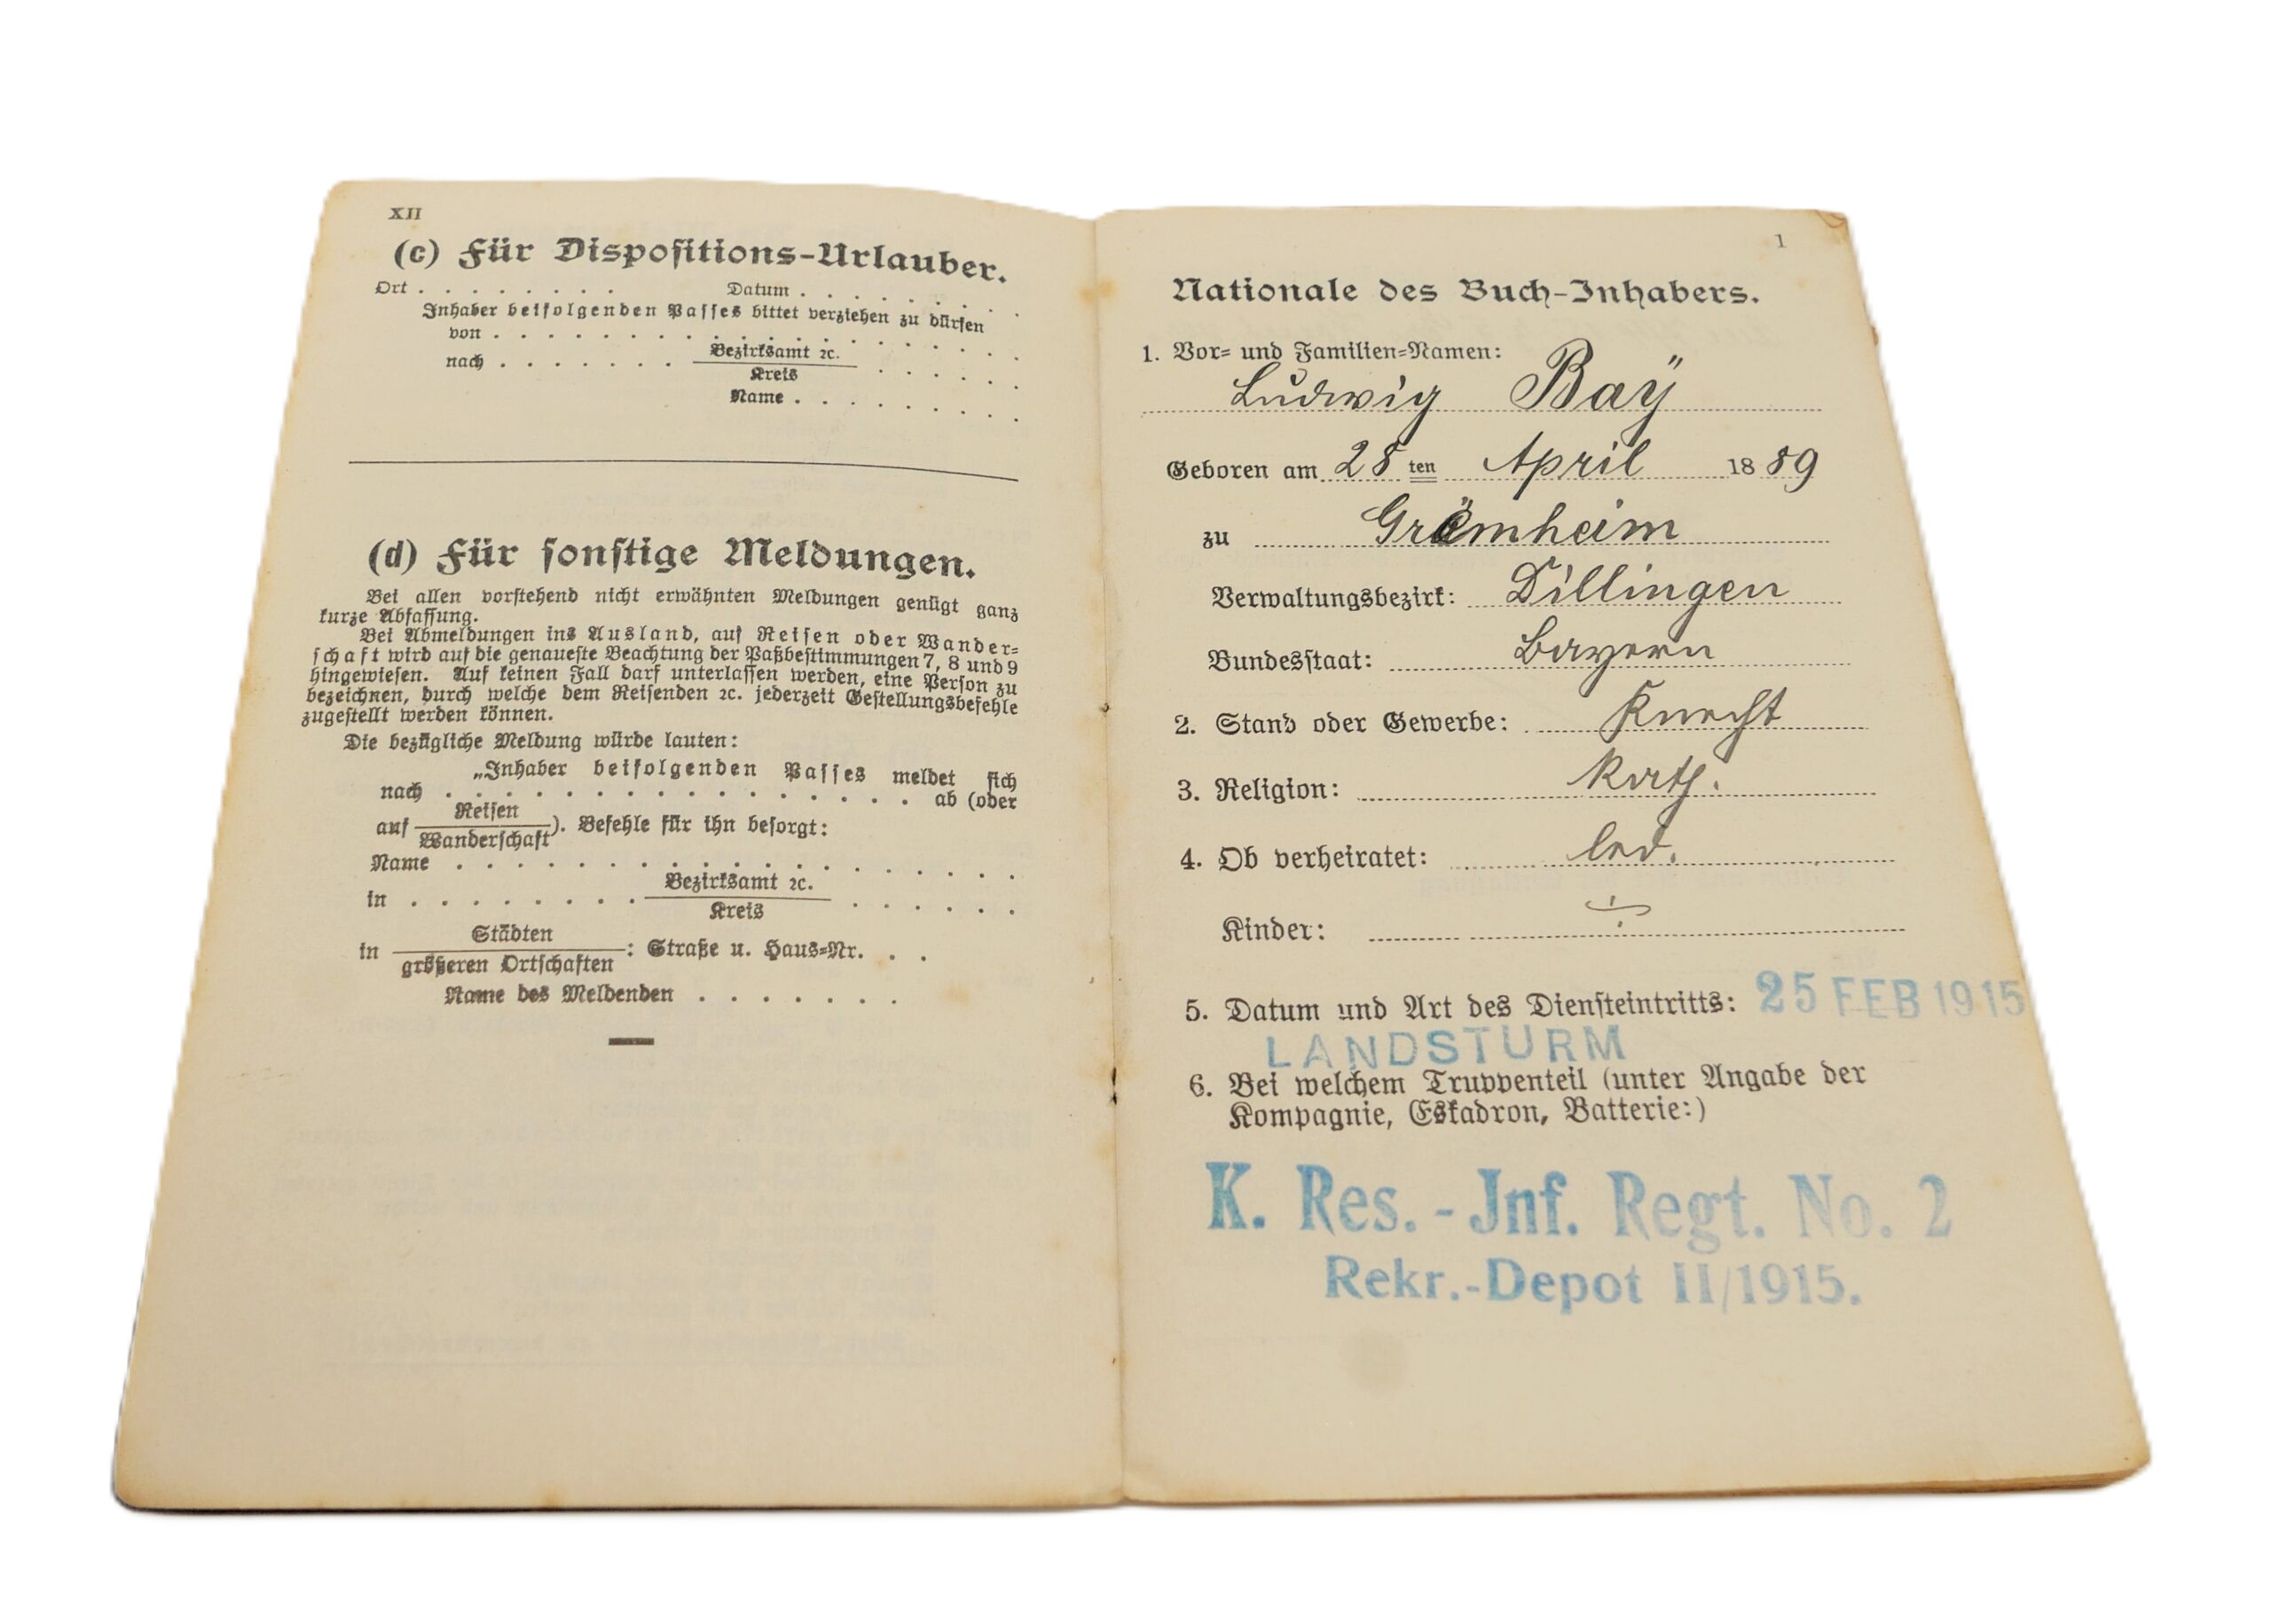 XII
(c) Für Dispositions-Urlauber.
Ort . . . . . . . Datum . . . . . . . .
Inhaber beifolgenden Passes bittet verziehen zu dürfen
von . . . . . . . . . . . . . . . . . .
nach . . . . . . . Bezirksamt ꝛc. . . . . . .
Kreis
Name . . . . . . . . .
(d) Für sonstige Meldungen.
Bei allen vorstehend nicht erwähnten Meldungen genügt ganz
kurze Abfassung.
Bei Abmeldungen ins Ausland, auf Reisen oder Wander-
schaft wird auf die genaueste Beachtung der Paßbestimmungen 7, 8 und 9
hingewiesen. Auf keinen Fall darf unterlassen werden, eine Person zu
bezeichnen, durch welche dem Reisenden ꝛc. jederzeit Gestellungsbefehle
zugestellt werden können.
Die bezügliche Meldung würde lauten:
„Inhaber beifolgenden Passes meldet sich
nach . . . . . . . . . . . . . . . . ab (oder
Reisen
auf ). Befehle für ihn besorgt:
Wanderschaft
Name . . . . . . . . . . . . . . . . .
Bezirksamt ꝛc.
in . . . . . . . . . . . . . .
Kreis
Städten
in : Straße u. Haus-Nr. . .
größeren Ortschaften
Name des Meldenden . . . . . . .
1
Nationale des Buch-Inhabers.
1. Vor- und Familien-Namen:
Ludwig Baÿ
Geboren am 28 ten April 1889
zu Gremheim
Verwaltungsbezirk: Dillingen
Bundesstaat: Bayern
2. Stand oder Gewerbe: Knecht
3. Religion: kath.
4. Ob verheiratet: led.
Kinder: ÷
5. Datum und Art des Diensteintritts: 25 FEB 1915
LANDSTURM
6. Bei welchem Truppenteil (unter Angabe der
Kompagnie, Eskadron, Batterie:)
K. Res.-Inf. Regt. No. 2
Rekr.-Depot II/1915.